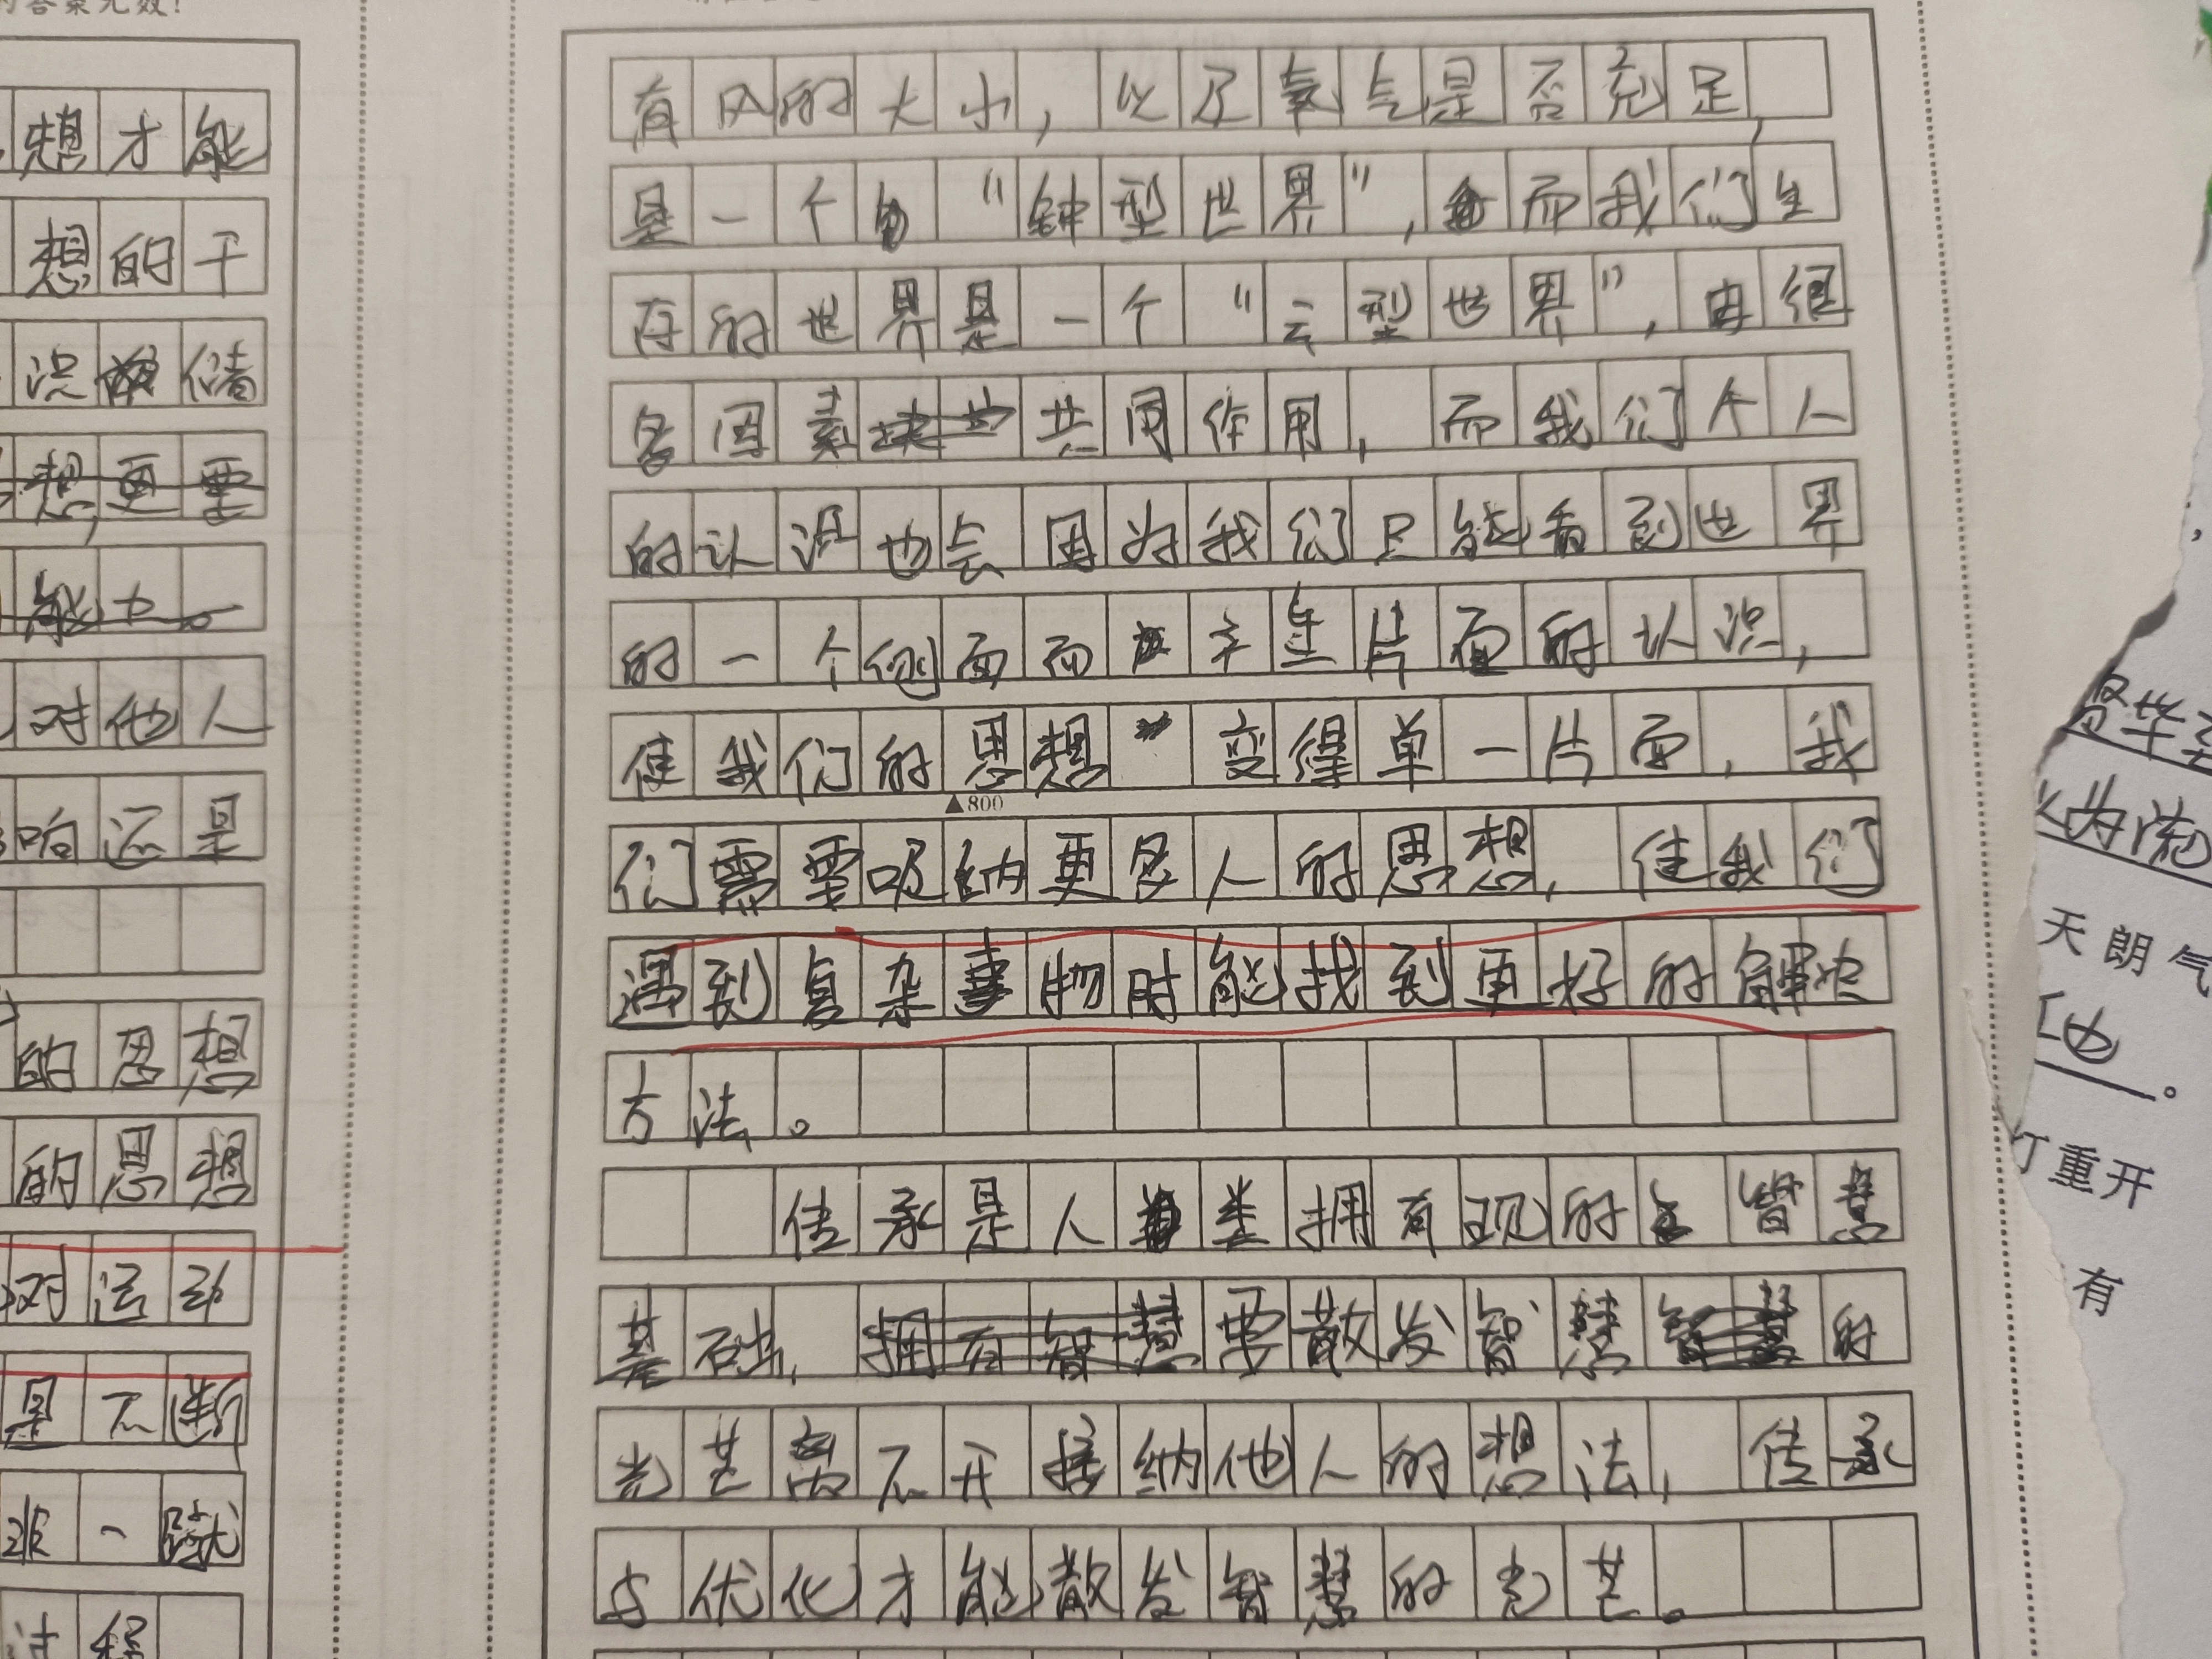 的答案无效!
想才能
想的干
识储
想,更重
能力。
对他人
响还是
的思想
的思想
对活动
是不断
一蹴
过程
有风的大小,以及氧气是否充足,
是一个的“钟型世界”,而我们生
存的世界是一个“云型世界”,由很
多因素共同作用,而我们个人
的认识也会因为我们只能看到世界
的一个侧面而产生片面的认识,
使我们的思想变得单一片面,我
▲800
们需要吸纳更多人的思想,使我们
遇到复杂事物时能找到更好的解决
方法。
传承是人类拥有现的智慧
基础,拥有智慧要散发智慧的
光芒离不开接纳他人的想法,传承
与优化才能散发智慧的光芒。
贤毕至
以为流
天朗气
也。
重开
有